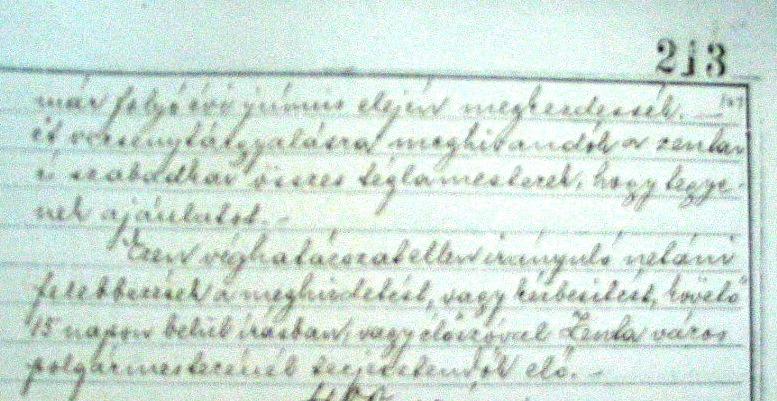 213
már folyó évi június elején megkezdessék. —
és versenytárgyalásra meghivandók a zentai
és szabadkai összes téglamesterek, hogy tegye-
nek ajánlatot. —
Ezen véghatározat ellen irányuló netáni
felebbezések a meghirdetést, vagy kézbesitést, követő
15 napon belül irásban, vagy élőszóval Zenta város
polgármesterénél terjesztendők elő. —